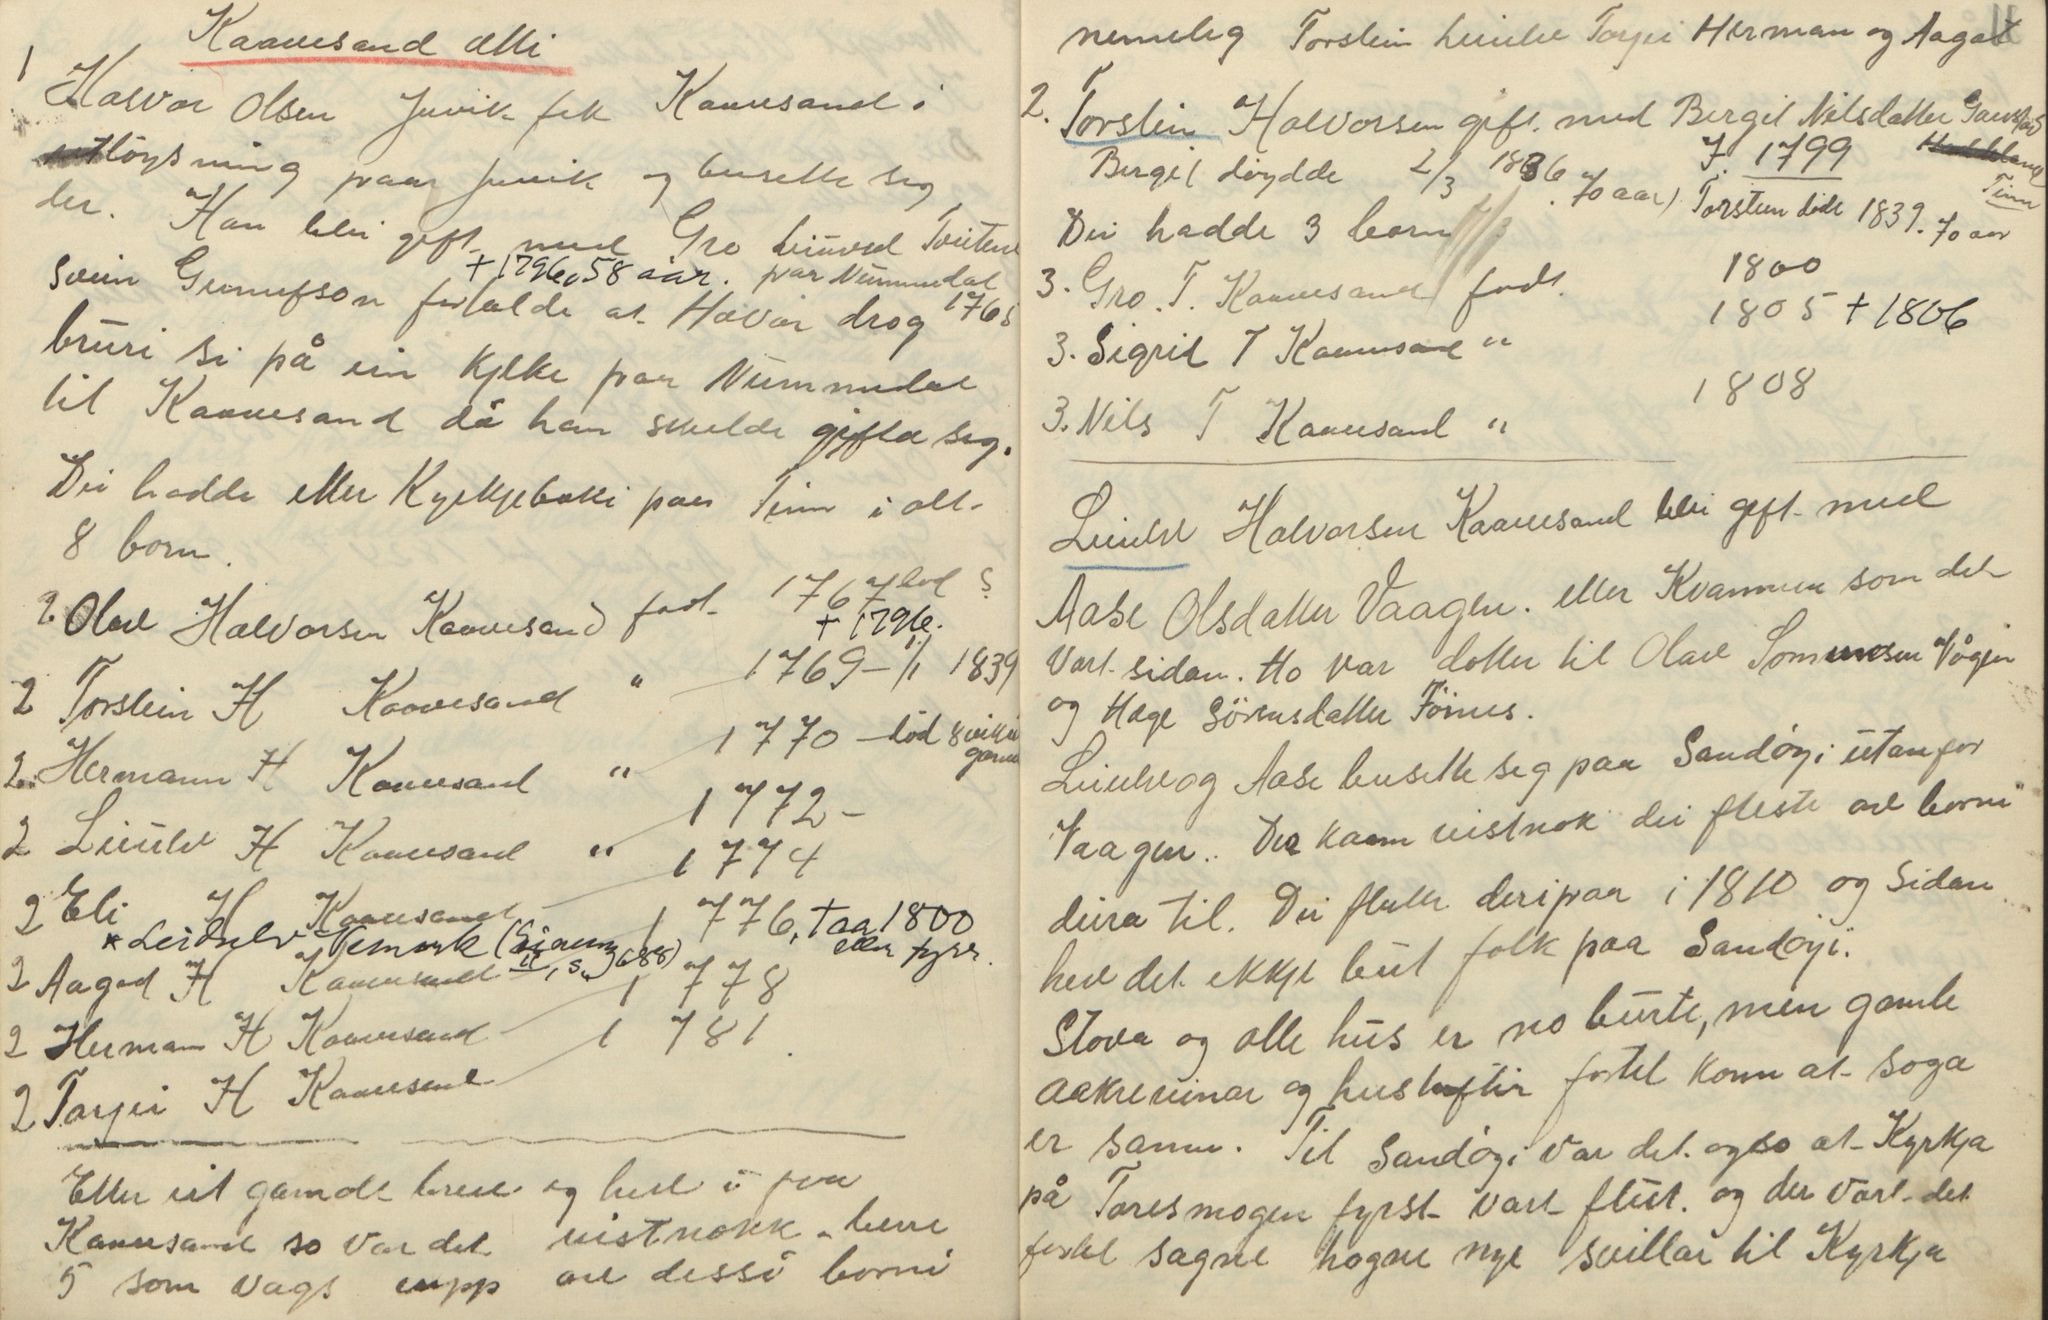 Kaavesand ætti
1
Halvor Olsen Juvik fek Kaavesand i
utløysning paa Juvik og busette seg
der. Han blei gift med Gro Leiuvsd Tveiten
+ 1796, 58 aar. paa Nummedal
Svein Gunnufson fortalde at Halvor drog 1765
bruri si på ein Kjelke paa Nummedal
til Kaavesand då han skulde gifta seg.
Dei hadde etter Kyrkjeboki paa Tinn i alt
8 born.
2. Olav Halvorsen Kaavesand født 1767 død ?
+ 1796.
2 Torstein H Kaavesand " 1769 – 1/1 1839
2. Hermann H Kaavesand " 1770 – død 8 vikur gamal
2 Leiulv H Kaavesand " 1772 –
2 Eli H Kaavesand 1774
* Leidulv Bemork (Einung II, s. 688)
2 Aagod H Kaavesand 1776, + aa 1800
eller fyrr.
2 Herman H Kaavesand 1778
2 Tarjei H Kaavesand 1781.
Etter eit gamalt brev eg hev i fraa
Kaavesand so var det vistnokk berre
5 som vags upp av dessi borni
nemeleg Torstein Leiulv Tarjei Herman og Aagot
2. Torstein Halvorsen gift med Bergit Nilsdatter Gaustad
Bergit døydde 2/3 1836. 70 aar) g. 1799
Tinn
Torstein døde 1839. 70 aar
Dei hadde 3 born
3. Gro. T. Kaavesand født. 1800
3. Sigrid T Kaavesand " 1805 + 1806
3. Nils T Kaavesand " 1808
Leiulv Halvorsen Kaavesand blei gift med
Aase Olsdatter Vaagen. eller Kvammen som det
vart sidan. Ho var dotter til Olav Sommensen Vågen
og Hæge Sörensdatter Fönnes.
Leiulv og Aase busette seg paa Sandøyi utanfor
Vaagen. Der kaam vistnok dei fleste av borni
deira til. Dei flutte derifraa i 1810 og sidan
hev det ikkje but folk paa Sandøyi.
Stova og alle hus er no burte, men gamle
aakrereinar og hustuftir fortel konn at soga
er sann. Til Sandøyi var det ogso at Kyrkja
på Taresmogen fyrst vart flut. og der vart det
fortel sagne hogne nye svillar til Kyrkja